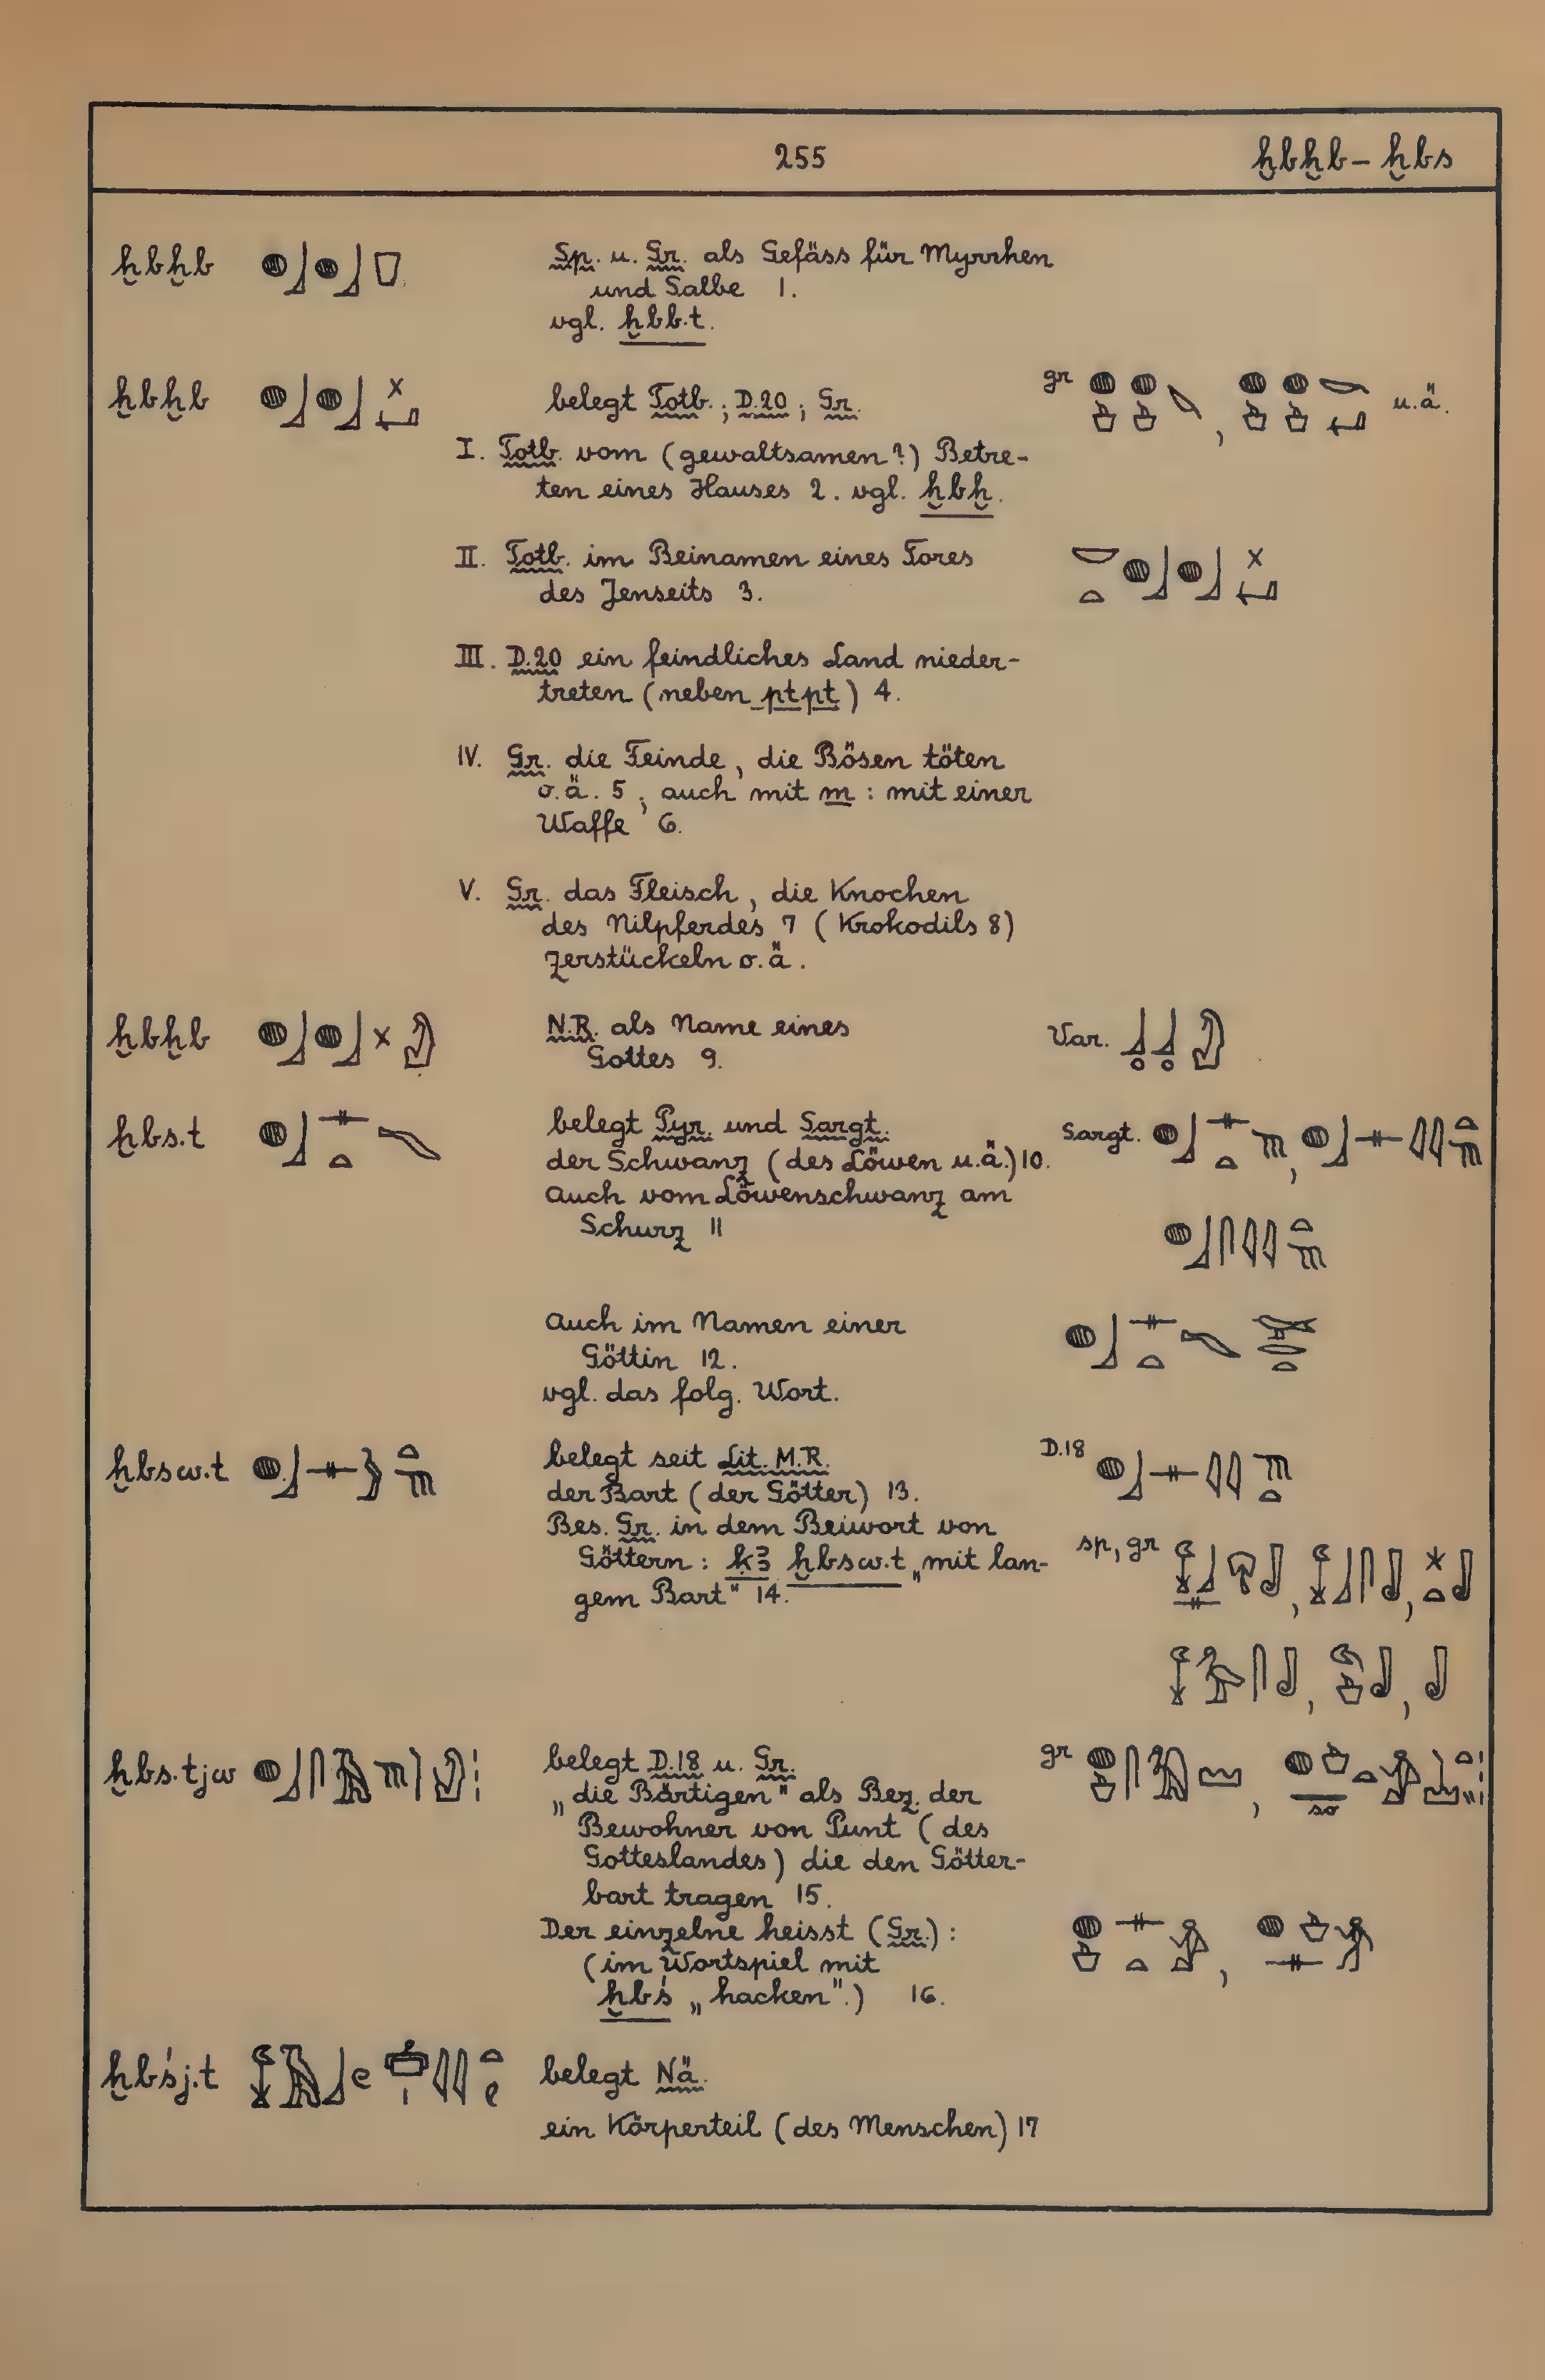 255 ḫbḫb – ḫbs
ḫbḫb Sp. u. Gr. als Gefäss für Myrrhen
und Salbe 1.
vgl. ḫbb.t.
ḫbḫb belegt Totb.; D.20; Gr. gr , u.ä.
I. Totb. vom (gewaltsamen?) Betre-
ten eines Hauses 2. vgl. ḫbḫ.
II. Totb. im Beinamen eines Tores
des Jenseits 3.
III. D.20 ein feindliches Land nieder-
treten (neben ptpt) 4.
IV. Gr. die Feinde, die Bösen töten
o.ä. 5; auch mit m : mit einer
Waffe 6.
V. Gr. das Fleisch, die Knochen
des Nilpferdes 7 (Krokodils 8)
zerstückeln o.ä.
ḫbḫb N.R. als Name eines Var.
Gottes 9.
ḫbs.t belegt Pyr. und Sargt. Sargt. ,
der Schwanz (des Löwen u.ä.) 10.
auch vom Löwenschwanz am
Schurz 11
auch im Namen einer
Göttin 12.
vgl. das folg. Wort.
ḫbsw.t belegt seit Lit. M.R. D.18
der Bart (der Götter) 13.
Bes. Gr. in dem Beiwort von
Göttern: kꜣ ḫbsw.t „mit lan- sp, gr , ,
gem Bart" 14.
, ,
ḫbs.tjw belegt D.18 u. Gr. gr ,
„die Bärtigen" als Bez. der so
Bewohner von Punt (des
Gotteslandes) die den Götter-
bart tragen 15.
Der einzelne heisst (Gr.): ,
(im Wortspiel mit
ḫbś „hacken".) 16.
ḫbśj.t belegt Nä.
ein Körperteil (des Menschen) 17